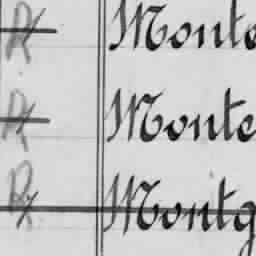 Monte
Monte
Montg